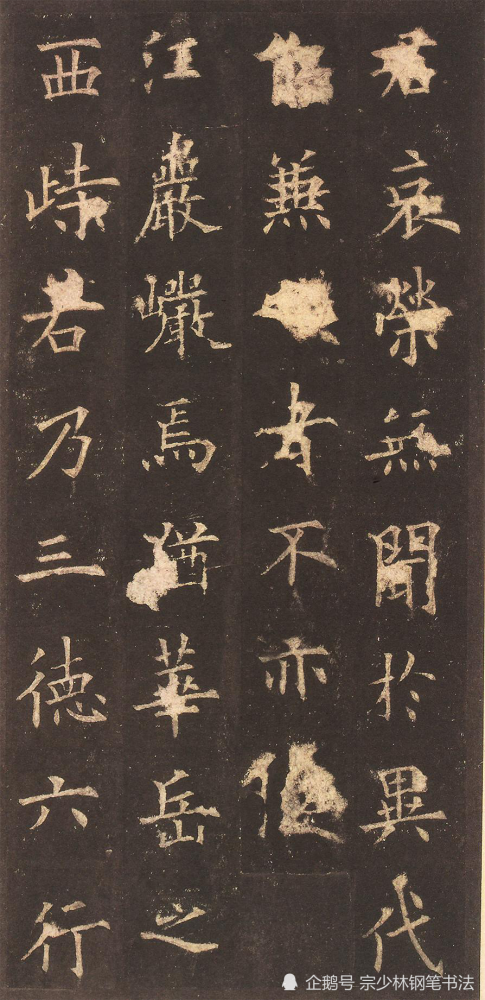 哀榮無聞於異代
兼者不亦
江巖巗焉猶華岳之
西峙若乃三徳六行
企鹅号 宗少林钢笔书法